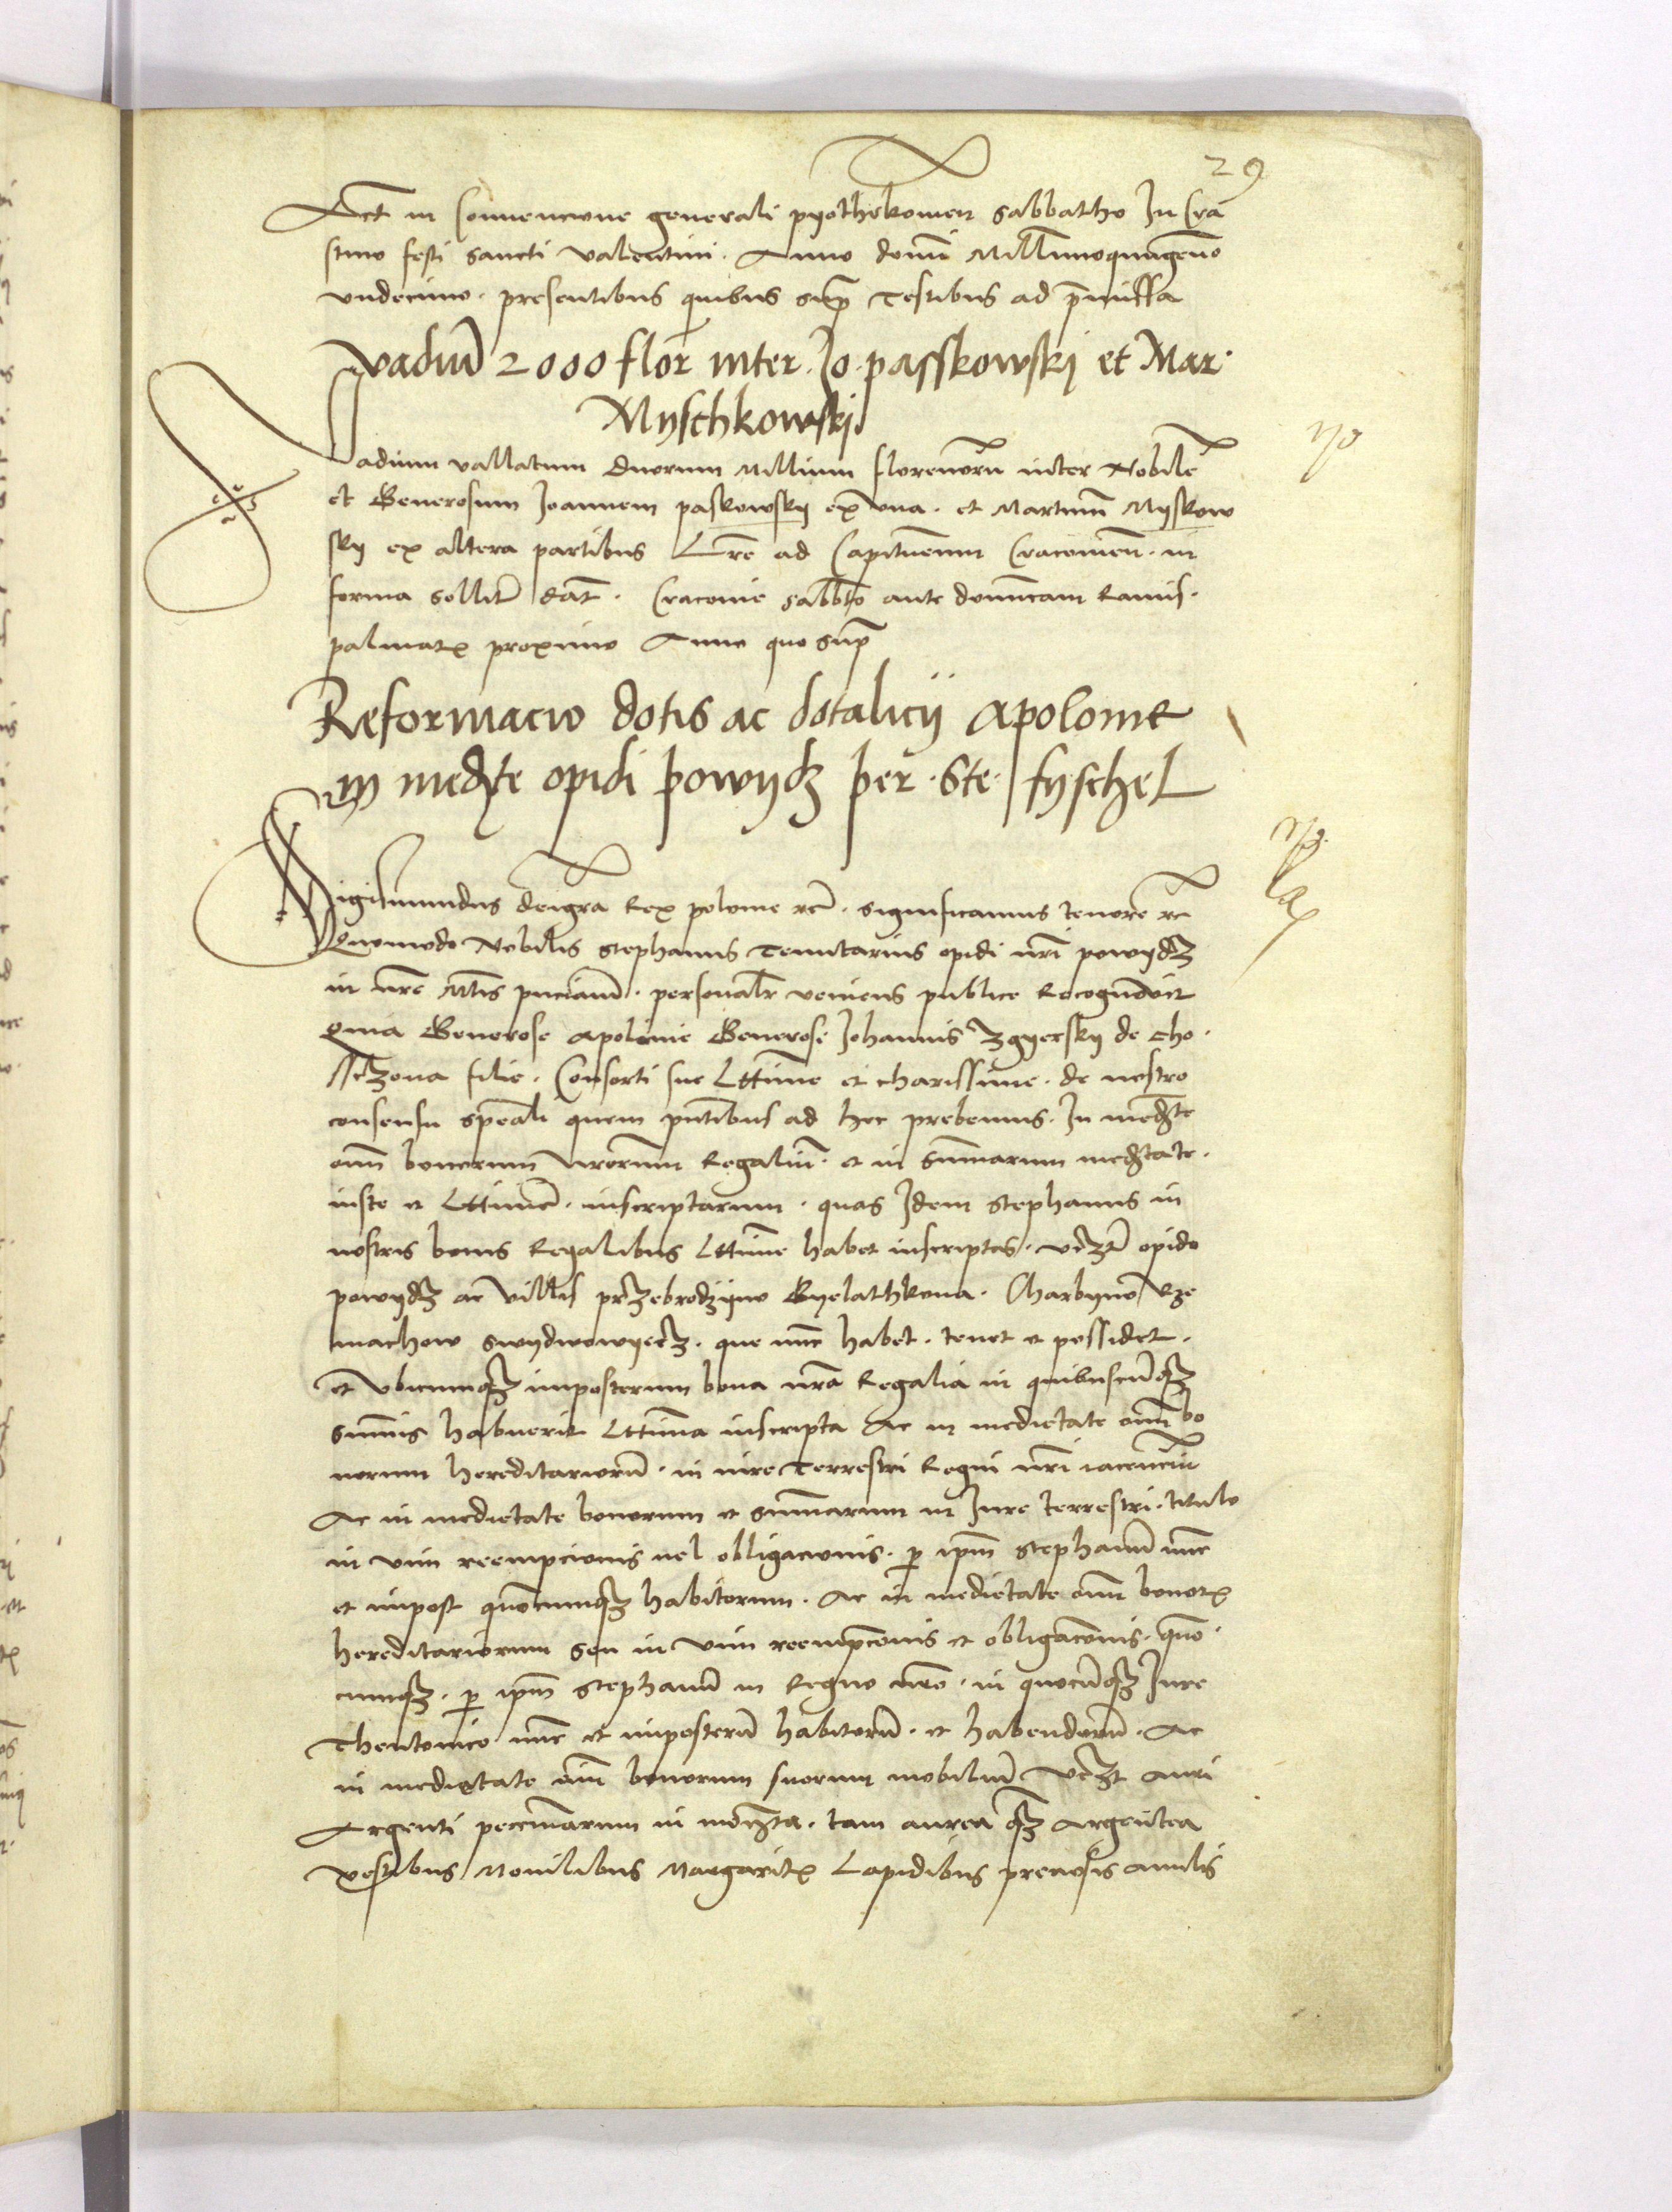 29
Act in Conuencione generali pyothrkowien Sabbatho In Cra
stino festi sancti valentini. Anno domi Millimoquingeno
vndecimo. presentibus quibus supra Testibus ad pmissa
vadiu 2000 flor inter. Jo. passkowskj et Mar.
Myschkowskj
Vadium vallatum duorum Millium florenoru inter Nobile
et Generosum Joannem paskowsky ex vna. et Martinu Myskow
sky ex altera partibus Lre ad Capitneum Cracouien. in
forma sollit dat. Cracouie sabbto ante domicam Ramis.
palmar proximo Anno quo sup
Reformacio dotis ac dotalicij Apolonie
in medte opidi powydz per. Ste. fyschel
Sigismundus deigra Rex polonie etc. significamus tenore etc
Quomodo Nobilis Stephanus Tenutarius opidi nri powydz
in nre Mtis pncia. personalr veniens publice Recognouit
Quia Generose Apolonie Generosi Johannis Zgyersky de Cho.
sczona filie. Consorti sue Lttime et charissime. de nostro
consensu speali quem pntibus ad hec prebemus. In medte
oim bonorum nrorum Regaliu. et in summarum medtate.
iuste et Lttime. inscriptarum. quas Idem Stephanus in
nostris bonis Regalibus Lttime habet inscriptas. vczt opido
powydz ac villis przebrodzyno Byelathkowa. Charbyno Rze
machow Swydwowyecz. que nunc habet. tenet et possidet.
et vbicumqz imposterum bona nra Regalia in quibuscuqz
summis habuerit Lttima inscripta Ac in medietate oim bo
norum hereditarioru. in iure Terrestri Regni nri iacenciu
Ac in medietate bonorum et summarum in Iure terrestri. titulo
in vim reempcionis vel obligacionis. p ipm Stephanu nunc
et impost quocumqz habitorum. Ac in medietate oim bonor
hereditariorum seu in vim reempconis et obligaconis. quo.
cumqz. p ipm Stephanu in Regno nro. in quocuqz Iure
Theutonico nunc et imposteru habitoru. et habendoru. Ac
in medietate oim bonorum suorum mobiliu vczt auri
Argenti pecuniarum in moneta. tam aurea qz Argentea
vestibus Monilibus Margarit Lapidibus preciosis anulis